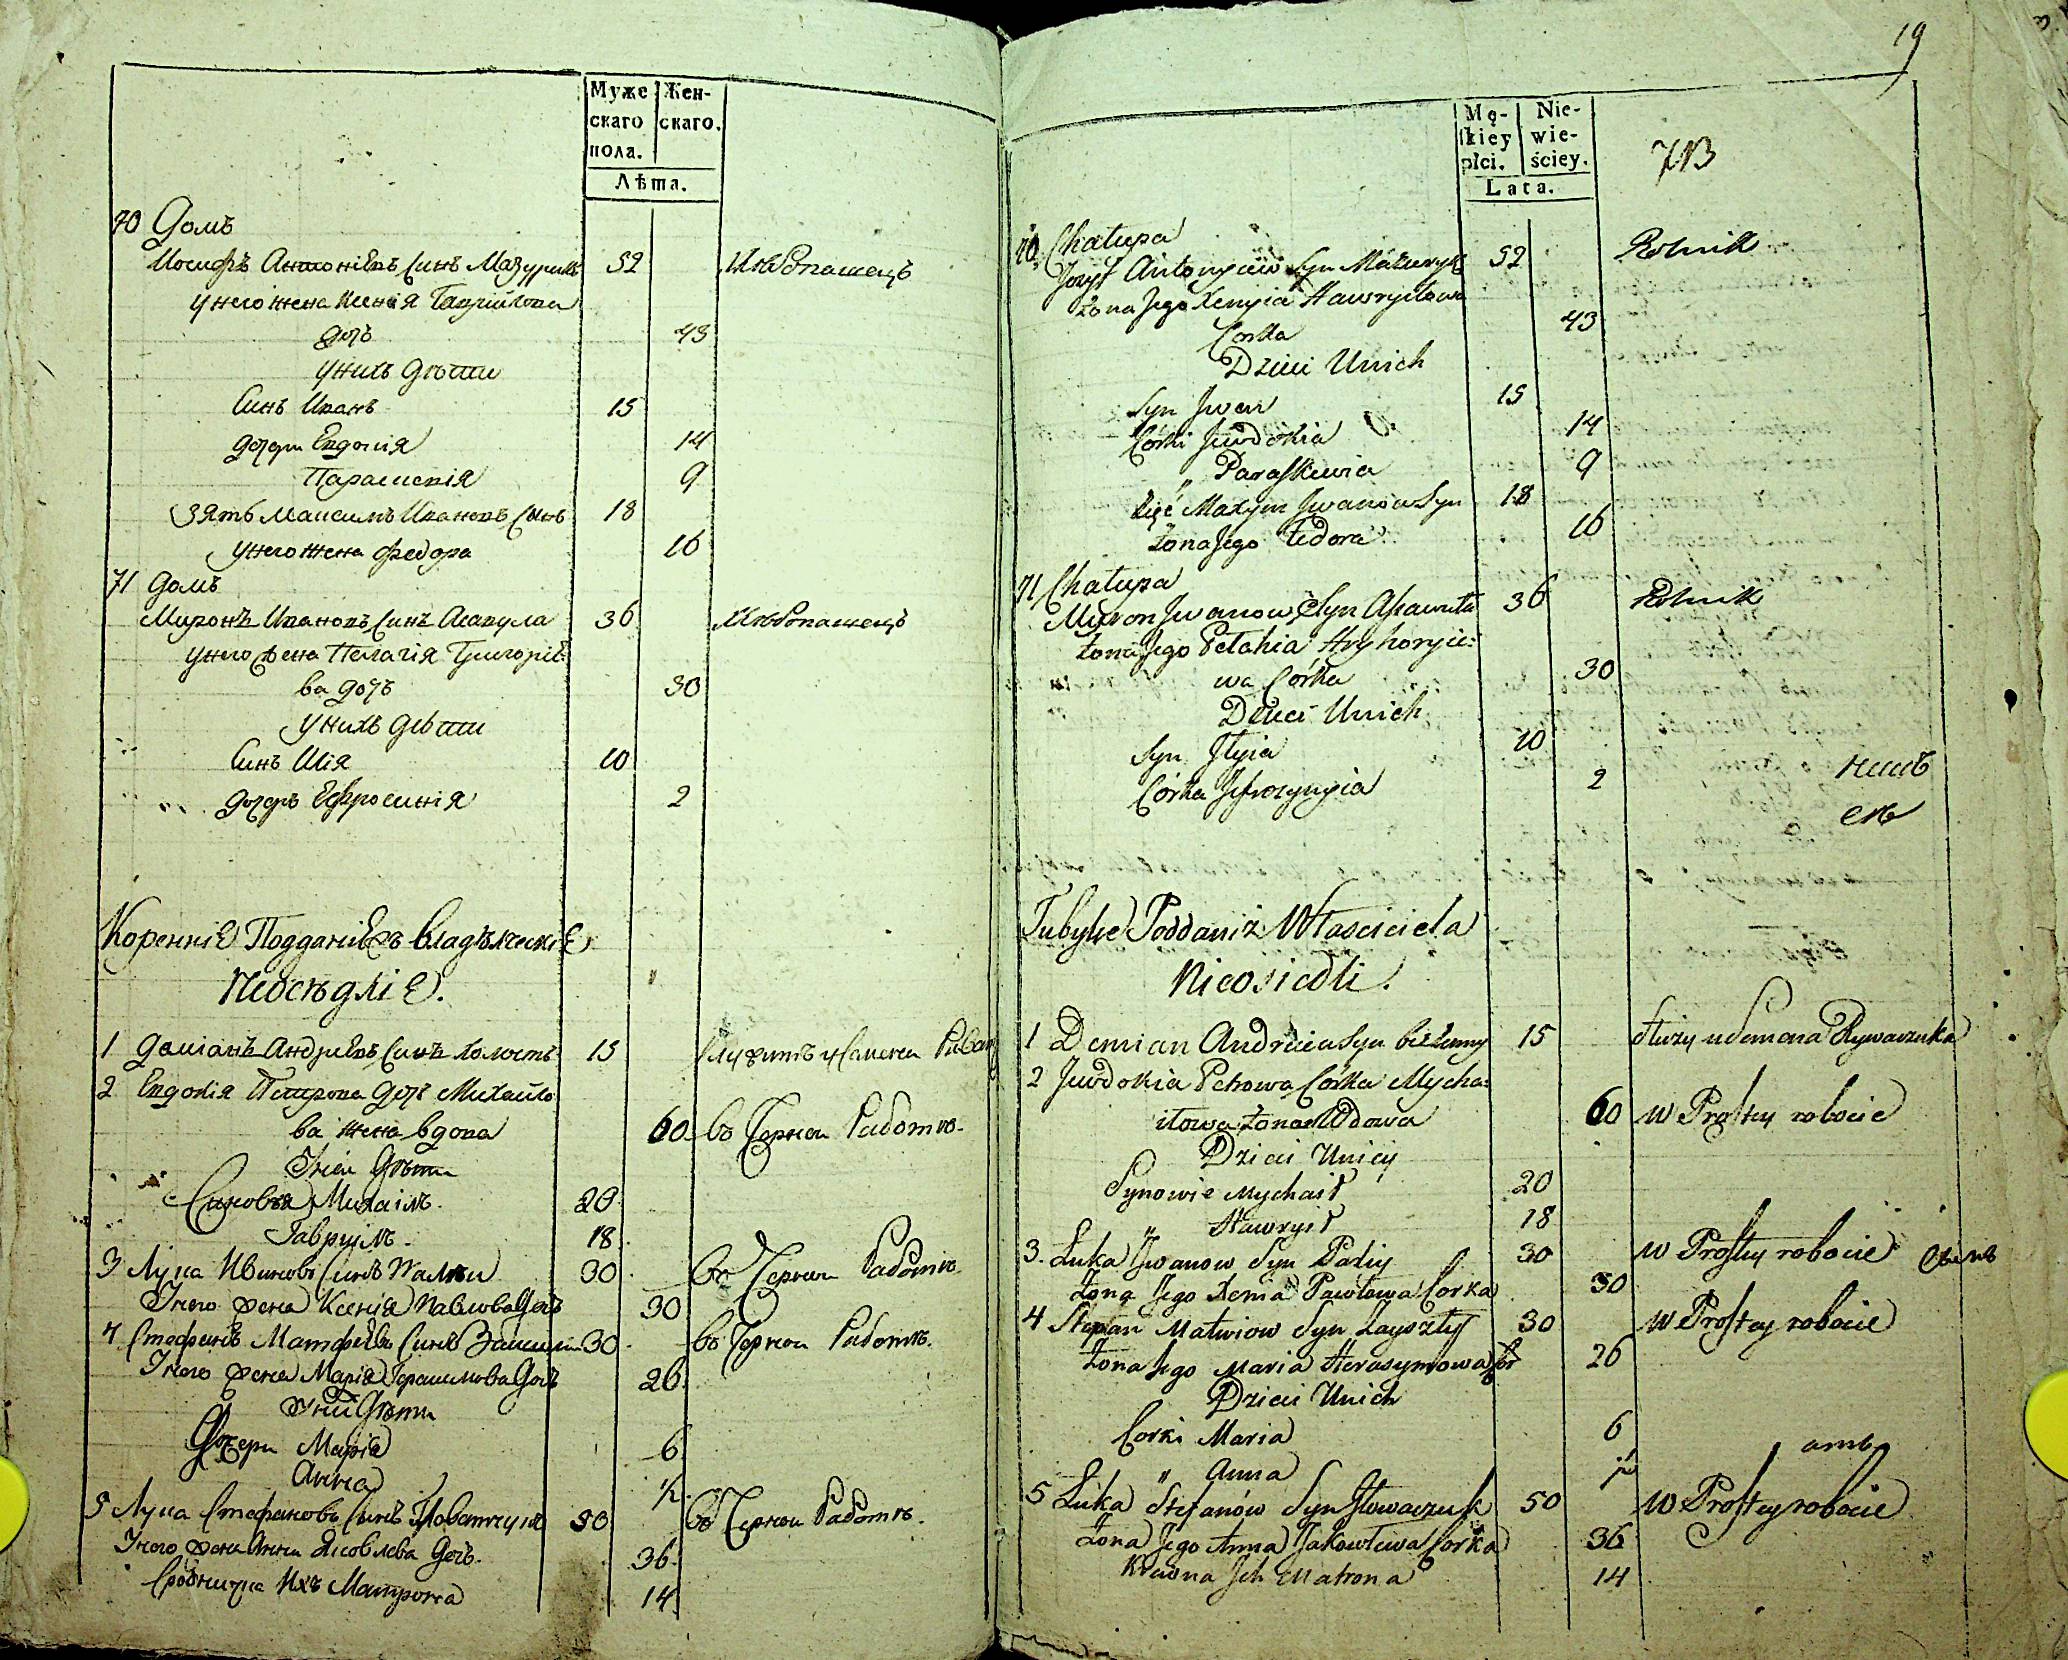 Муже
скаго
пола.
Жен-
скаго.
Лѣта.
70 Домъ
Иосифъ Антоніевъ Синъ Мазурикъ 52 Хлѣбопашецъ
у него жена Ксенія Гаврилова
дочъ 43
у нихъ дѣти
Синъ Иванъ 15
дочери Евдокія 14
Параскевія 9
Зять Максимъ Ивановъ Синъ 18
у него жена Федора 16
71 домъ
Миронъ Ивановъ Синъ 36 Хлѣбопашецъ
у него жена Пелагія Григоріе
ва дочъ 30
у нихъ дѣти
Синъ Илія 10
дочеръ Ефросинія 2
Коренніе Подданіе владѣлческіе
Неосѣдліе.
1 Деміанъ Андриевъ Синъ холостъ 15 Служитъ у Семена
2 Евдокія Петрова дочъ Михайло
ва жена вдова 60 въ Черной Работѣ.
У ней Дѣти
Синовья Михаілъ 20
Гавриілъ 18
3 Лука Ивановъ Синъ Палѣи 30 въ Черной Работѣ
У него жена Ксенія Павлова Дочъ 30
4 Стефанъ Матфѣевъ Синъ 30 въ Черной Работѣ.
У него жена Марія Герасимова Дочъ 26
У нихъ Дѣти
Дочери Марія 6
Анна ½
5 Лука Стефановъ Синъ 50 въ Черной Работѣ.
У него жена Анна Яковлева Дочъ 36
Сродница Ихъ Матрона 14
19
Mę-
ſkiey
płci.
Nie-
wie-
ściey.
Lata.
70 Chałupa
Jozyf Antonyiew Syn Mazuryk 52 Rolnik
Żona Jego Xenyia Hawryłowa
Corka 43
Dzieci Unich
Syn Jwan 15
Córki Jewdokia 14
" Paraſkiewia 9
Zięć Maxym Jwanów Syn 18
Żona Jego Fedora 16
71 Chałupa
Myron Jwanow Syn 36 Rolnik
Żona Jego Pelahia Hryhoryie:
wa Córka 30
Dzieci Unich
Syn Jłyia 10
Córka Jefrozynyia 2
Tubylce Poddani z Własciciela
Nieosiedli.
1 Demian Andreiew Syn bezżenny 15 służy u Semena Rywaczuka
2 Jewdokia Petrowa Córka Mycha:
iłowa żona Wdowa 60 w Prostey robocie
Dzieci Unicy
Synowie Mychaił 20
" Hawryił 18
3. Łuka Jwanow Syn Paliy 30 w Prostey robocie
Żona Jego Xenia Pawłowa Corka 30
4 Stepan Matwiow Syn 30 w Prostey robocie
Żona Jego Maria Herasymowa Cor 26
Dzieci Unich
Corki Maria 6
" Anna ½
5 Łuka Stefanów Syn 50 w Prostey robocie
Żona Jego Anna Jakowlewa Corka 36
Krewna Jch Matrona 14